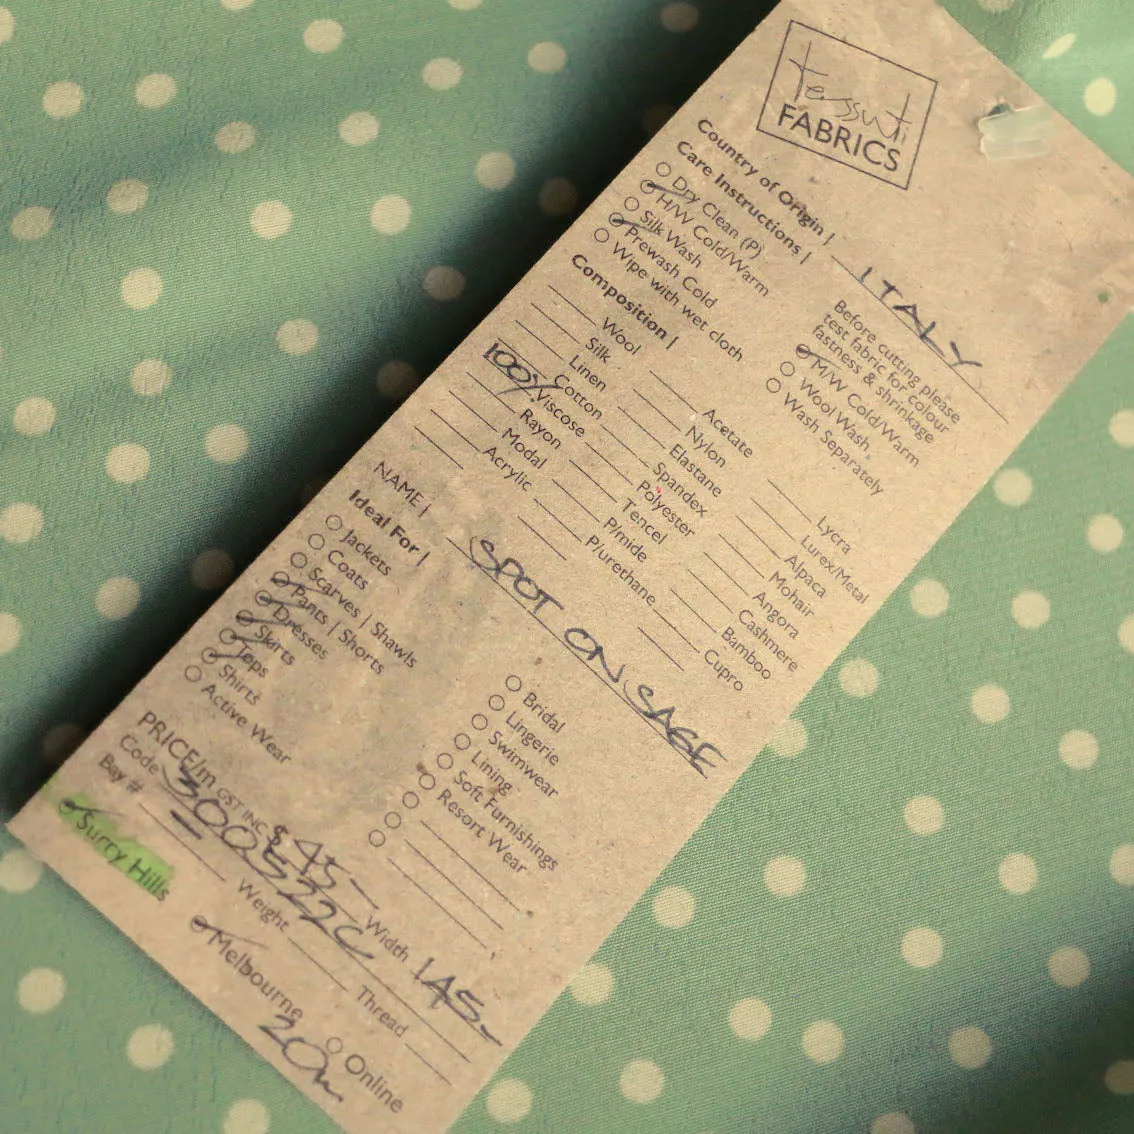 tessuti
FABRICS
Country of Origin | ITALY
Care Instructions |
Dry Clean (P)
H/W Cold/Warm
Silk Wash
Prewash Cold
Wipe with wet cloth
Before cutting please
test fabric for colour
fastness & shrinkage
M/W Cold/Warm
Wool Wash
Wash Separately
Composition |
Wool
Silk
Linen
Cotton
100% Viscose
Rayon
Modal
Acrylic
Acetate
Nylon
Elastane
Spandex
Polyester
Tencel
P/mide
P/urethane
Lycra
Lurex/Metal
Alpaca
Mohair
Angora
Cashmere
Bamboo
Cupro
NAME | SPOT ON SAGE
Ideal For |
Jackets
Coats
Scarves | Shawls
Pants | Shorts
Dresses
Skirts
Tops
Shirts
Active Wear
Bridal
Lingerie
Swimwear
Lining
Soft Furnishings
Resort Wear
PRICE/m GST INC $45- Width 145-
Code 300522C
Bay # Weight Thread
Surry Hills Melbourne Online
20m